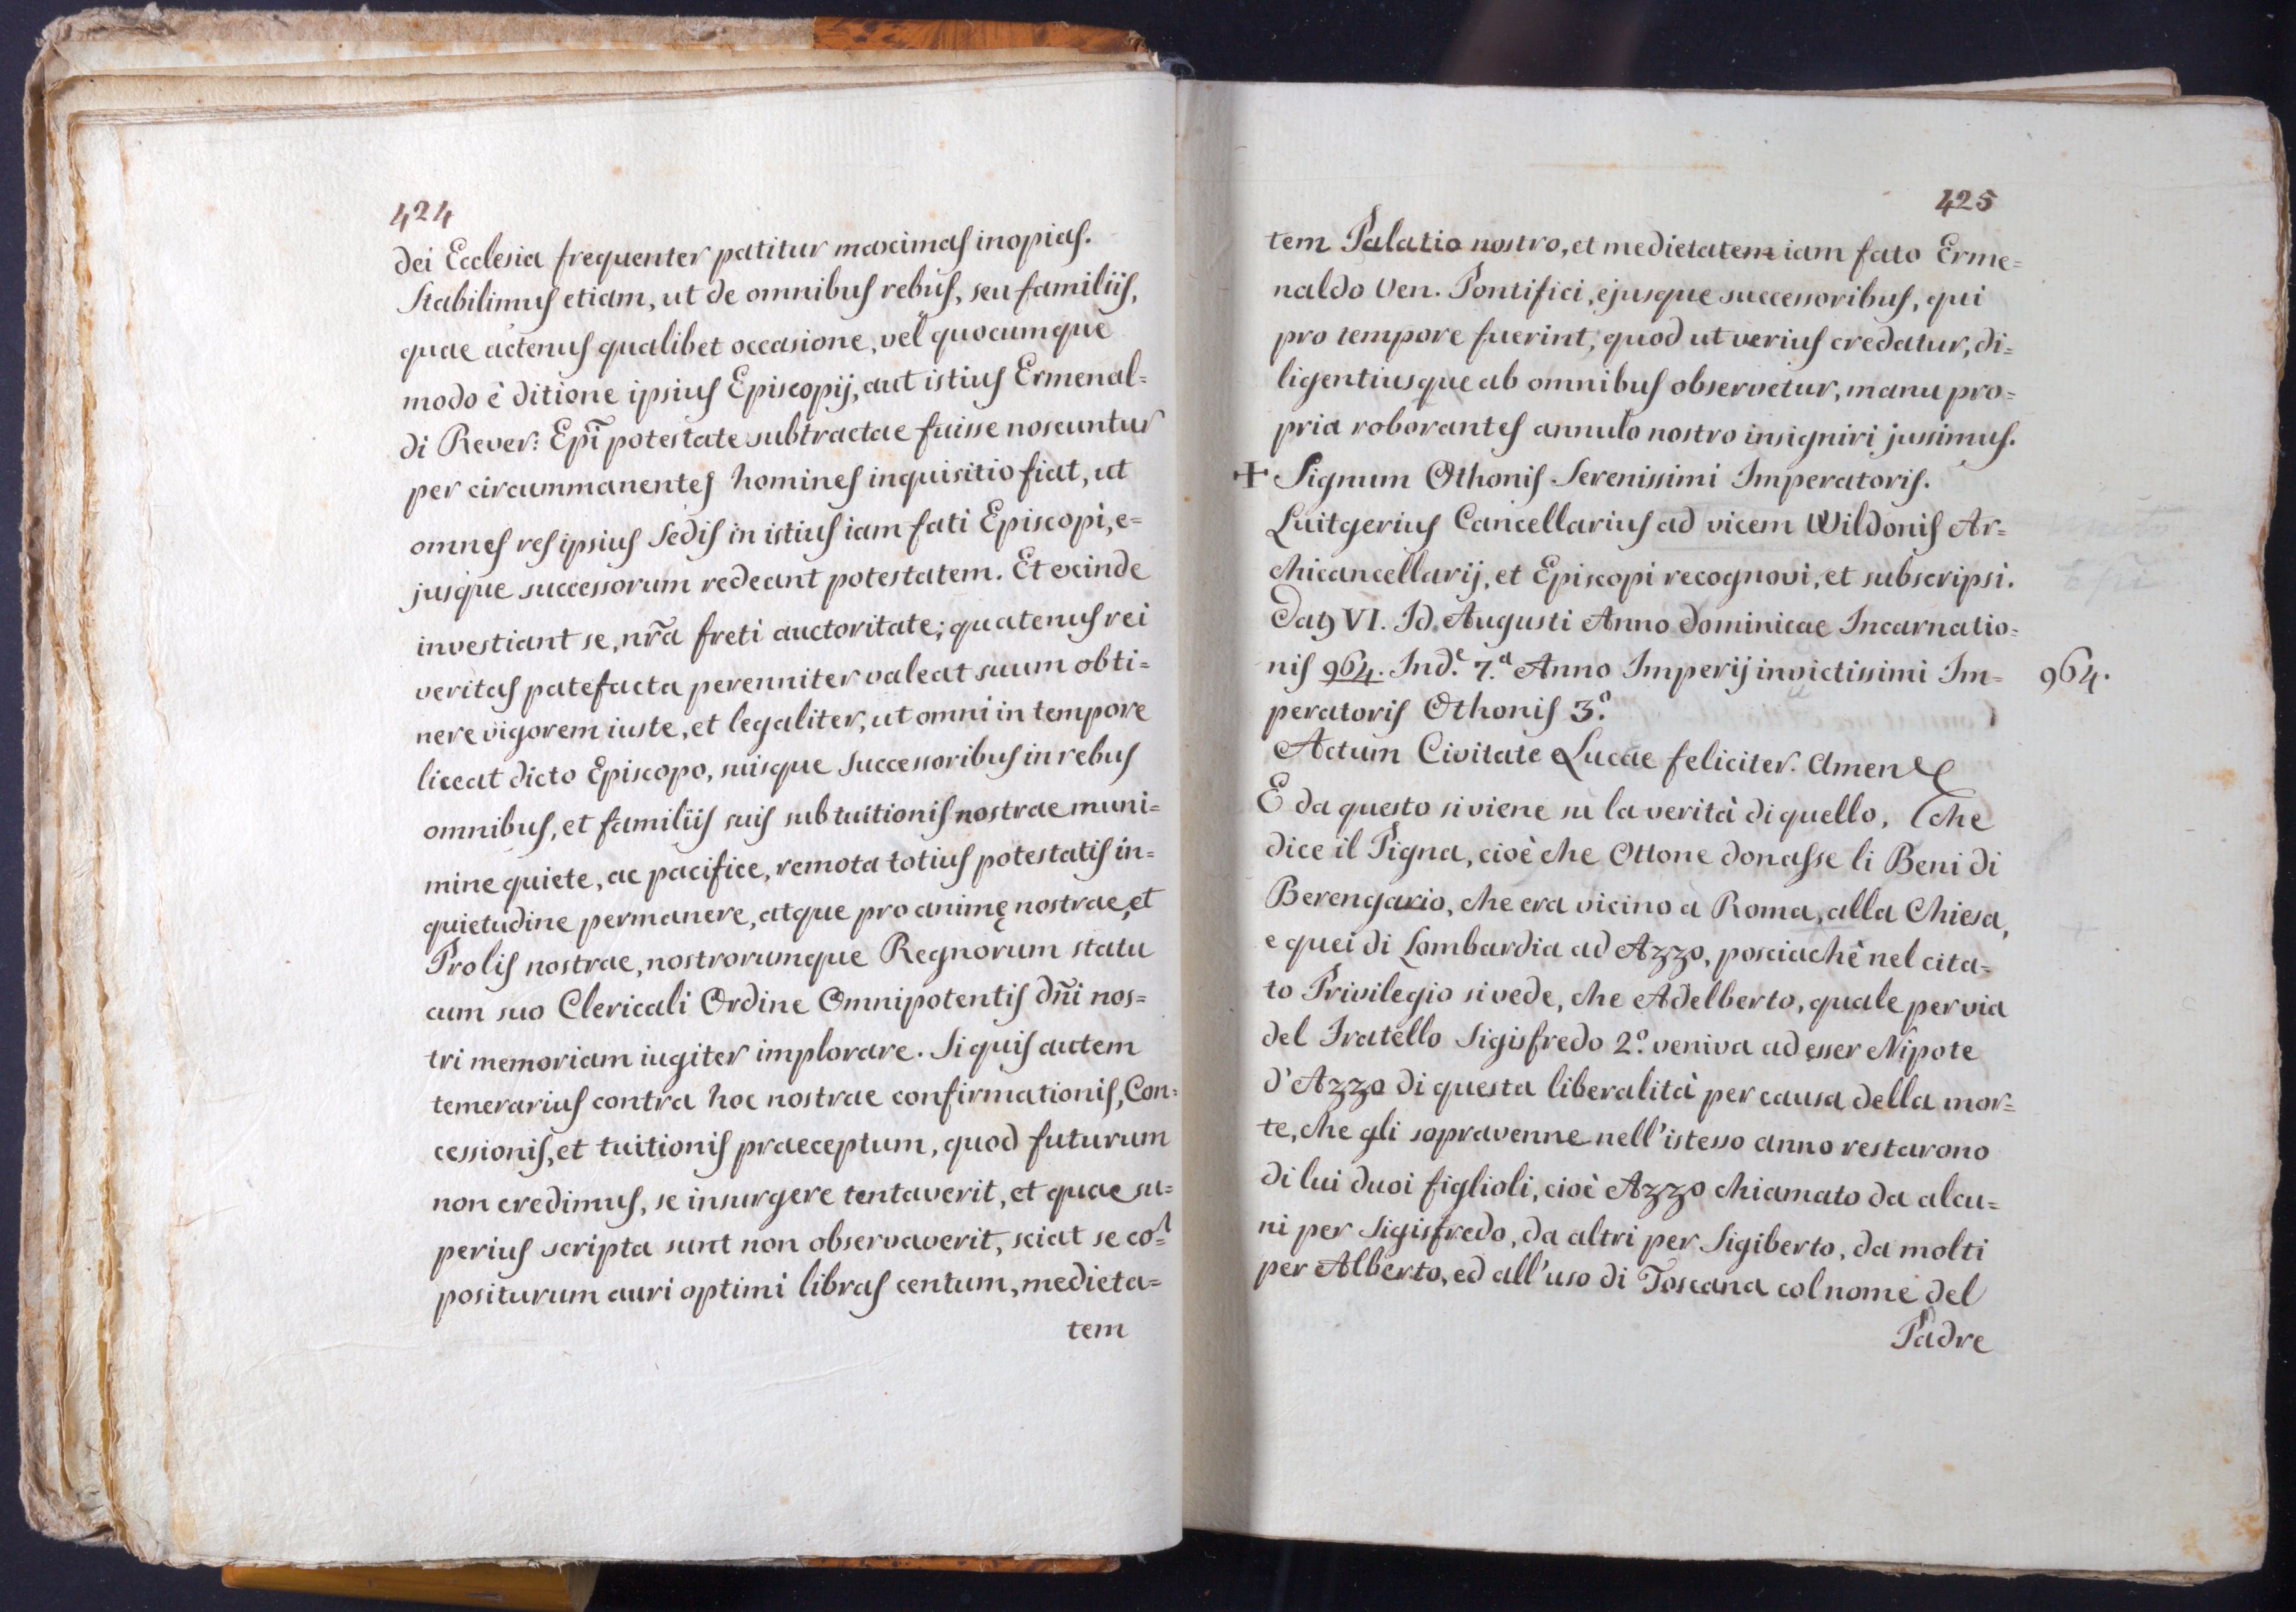 424
dei Ecclesia frequenter patitur maximas inopias.
Stabilimus etiam, ut de omnibus rebus, seu familiis,
quae actenus qualibet occasione, vel quocumque
modo è ditione ipsius Episcopij, aut istius Ermenal=
di Rever: Epĩ potestate subtractae fuisse noscuntur
per circummanentes homines inquisitio fiat, ut
omnes res ipsius Sedis in istius iam fati Episcopi, e=
jusque successorum redeant potestatem. Et exinde
investiant se, nr̃a freti auctoritate; quatenus rei
veritas patefacta perenniter valeat suum obti=
nere vigorem iuste, et legaliter, ut omni in tempore
liceat dicto Episcopo, suisque Successoribus in rebus
omnibus, et familiis suis sub tuitionis nostrae muni=
mine quiete, ac pacifice, remota totius potestatis in=
quietudine permanere, atque pro animę nostrae, et
Prolis nostrae, nostrorumque Regnorum statu
cum suo Clericali Ordine Omnipotentis dñi nos=
tri memoriam iugiter implorare. Si quis autem
temerarius contra hoc nostrae confirmationis, Con=
cessionis, et tuitionis praeceptum, quod futurum
non credimus, se insurgere tentaverit, et quae su=
perius scripta sunt non observaverit, sciat se co=
positurum auri optimi libras centum, medieta=
tem
425
tem Palatio nostro, et medietatem iam fato Erme=
naldo Ven. Pontifici, ejusque successoribus, qui
pro tempore fuerint; quod ut verius credatur, di=
ligentiusque ab omnibus observetur, manu pro=
pria roborantes annulo nostro insigniri jussimus.
✠ Signum Othonis Serenissimi Imperatoris.
Luitgerius Cancellarius ad vicem Widonis Ar=
chicancellarij, et Episcopi recognovi, et subscripsi.
Dat VI. Id. Augusti Anno Dominicae Incarnatio=
nis 964. Ind.e 7.a Anno Imperij invictissimi Im=
964.
peratoris Othonis 3.o
Actum Civitate Lucae feliciter. Amen
E da questo si viene sù la verità di quello, che
dice il Pigna, cioè che Ottone donasse li Beni di
Berengario, che era vicino à Roma, alla Chiesa,
e quei di Lombardia ad Azzo, posciachè nel cita=
to Privilegio si vede, che Adelberto, quale per via
del Fratello Sigisfredo 2.o veniva ad esser Nipote
d'Azzo di questa liberalità per causa della mor=
te, che gli sopravenne nell'istesso anno restarono
di lui duoi figlioli, cioè Azzo chiamato da alcu=
ni per Sigisfredo, da altri per Sigiberto, da molti
per Alberto, ed all'uso di Toscana col nome del
Padre